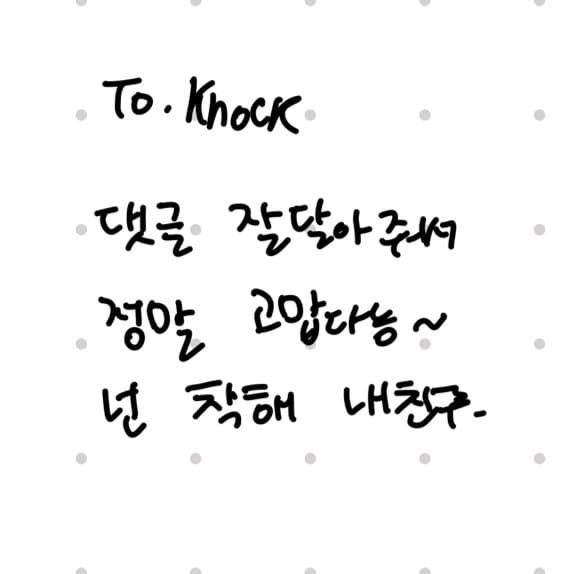 To. Knock
댓글 잘달아주서
정말 고맙다능~
넌 착해 내친구.